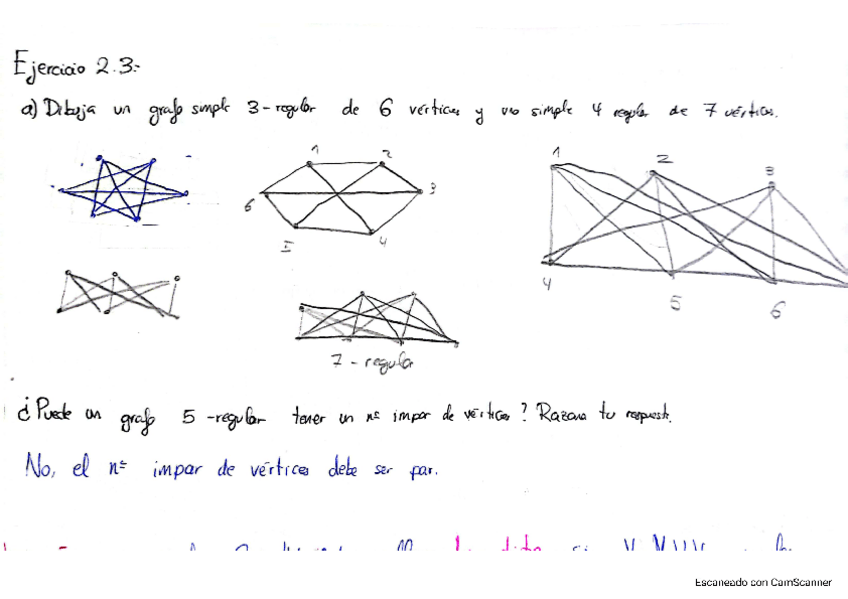 Ejercicio 2.3:
a) Dibuja un grafo simple 3-regular de 6 vértices y uno simple 4 regular de 7 vértices.
1 2 3 4 5 6
1 2 3 4 5 6
7-regular
¿Puede un grafo 5-regular tener un nº impar de vértices? Razona tu respuesta.
No, el nº impar de vértices debe ser par.
Escaneado con CamScanner